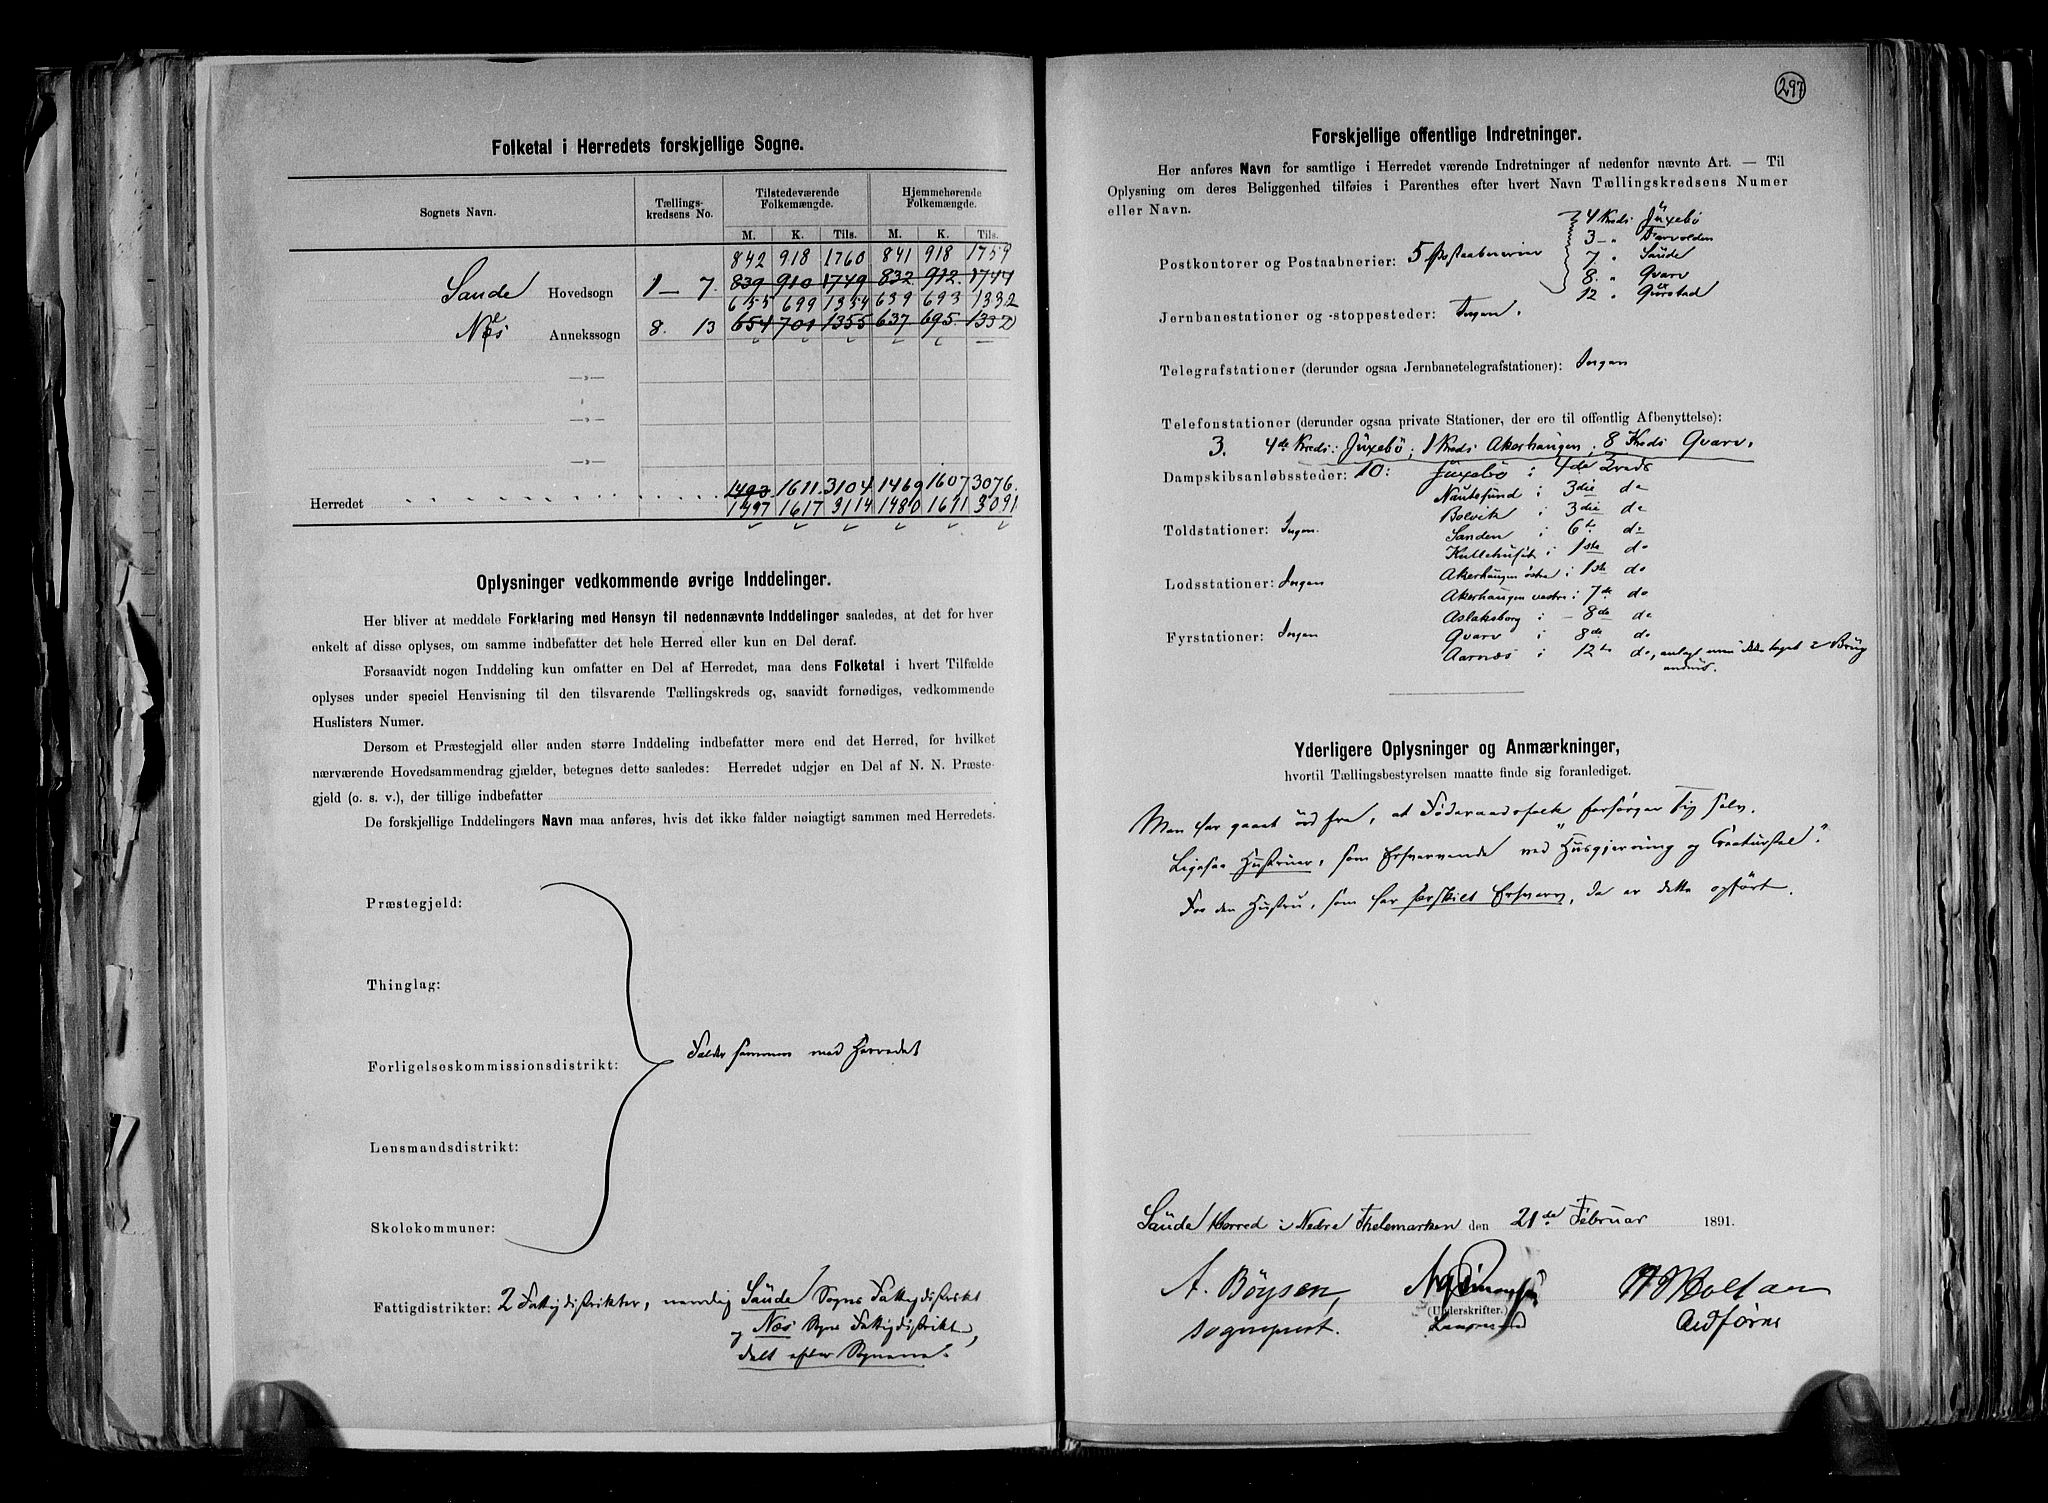 Folketal i Herredets forskjellige Sogne.
Sognets Navn. Tællings-kredsens No. Tilstedeværende Folkemængde. Hjemmehørende Folkemængde.
M. K. Tils. M. K. Tils.
842 918 1760 841 918 1759
Saude Hovedsogn 1 — 7. 839 910 1749 832 912 1744
655 699 1354 639 693 1332
Nes Annekssogn 8. 13 654 701 1355 637 695 1332
—»—
—»—
—»—
1493 1611 3104 1469 1607 3076
Herredet 1497 1617 3114 1480 1611 3091
Oplysninger vedkommende øvrige Inddelinger.
Her bliver at meddele Forklaring med Hensyn til nedennævnte Inddelinger saaledes, at det for hver
enkelt af disse oplyses, om samme indbefatter det hele Herred eller kun en Del deraf.
Forsaavidt nogen Inddeling kun omfatter en Del af Herredet, maa dens Folketal i hvert Tilfælde
oplyses under speciel Henvisning til den tilsvarende Tællingskreds og, saavidt fornødiges, vedkommende
Huslisters Numer.
Dersom et Præstegjeld eller anden større Inddeling indbefatter mere end det Herred, for hvilket
nærværende Hovedsammendrag gjælder, betegnes dette saaledes: Herredet udgjør en Del af N. N. Præste-
gjeld (o. s. v.), der tillige indbefatter
De forskjellige Inddelingers Navn maa anføres, hvis det ikke falder nøiagtigt sammen med Herredets.
Præstegjeld:
Thinglag:
Forligelseskommissionsdistrikt: Falder sammen med Herredet
Lensmandsdistrikt:
Skolekommuner:
Fattigdistrikter: 2 Fattigdistrikter, nemlig Saude Sogns Fattigdistrikt
og Næs Sogns Fattigdistrikt,
delt efter Sognene.
297
Forskjellige offentlige Indretninger.
Her anføres Navn for samtlige i Herredet værende Indretninger af nedenfor nævnte Art. — Til
Oplysning om deres Beliggenhed tilføies i Parenthes efter hvert Navn Tællingskredsens Numer
eller Navn.
4 Kreds Jüxebø
3 — " Farvolden
Postkontorer og Postaabnerier: 5 Postaabnerier 7 " Saude
8. " Qvarv
12 "
Jernbanestationer og -stoppesteder: Ingen.
Telegrafstationer (derunder ogsaa Jernbanetelegrafstationer): Ingen
Telefonstationer (derunder ogsaa private Stationer, der ere til offentlig Afbenyttelse):
3. 4de Kreds: Jüxebø; 1 Kreds Akerhaugen; 8 Kreds Qvarv.
Dampskibsanløbssteder: 10: Jüxebø i 4de Kreds
Nautesund i 3die do
Bolvik i 3die do
Toldstationer: Ingen. Sanden i 6te do
i 1ste do
Lodsstationer: Ingen Akerhaugen østre i 1ste do
Akerhaugen vestre i 7de do
Aslaksborg i — 8de do
Fyrstationer: Ingen Qvarv i 8de do
Aarnæs i 12te do, anlagt men ikke taget i Brug
endnu.
Yderligere Oplysninger og Anmærkninger,
hvortil Tællingsbestyrelsen maatte finde sig foranlediget.
Man har gaaet ud fra, at Føderaadsfolk forsørger sig selv.
Ligesaa Hustruer, som Erhvervende ved "Husgjerning og Creaturstel".
For den Hustru, som har særskilt Erhverv, da er dette opført.
Saude Herred i Nedre Thelemarken den 21de Februar 1891.
A. Bøysen,
(Underskrifter.)
sognepræst. Lensmand Ordfører